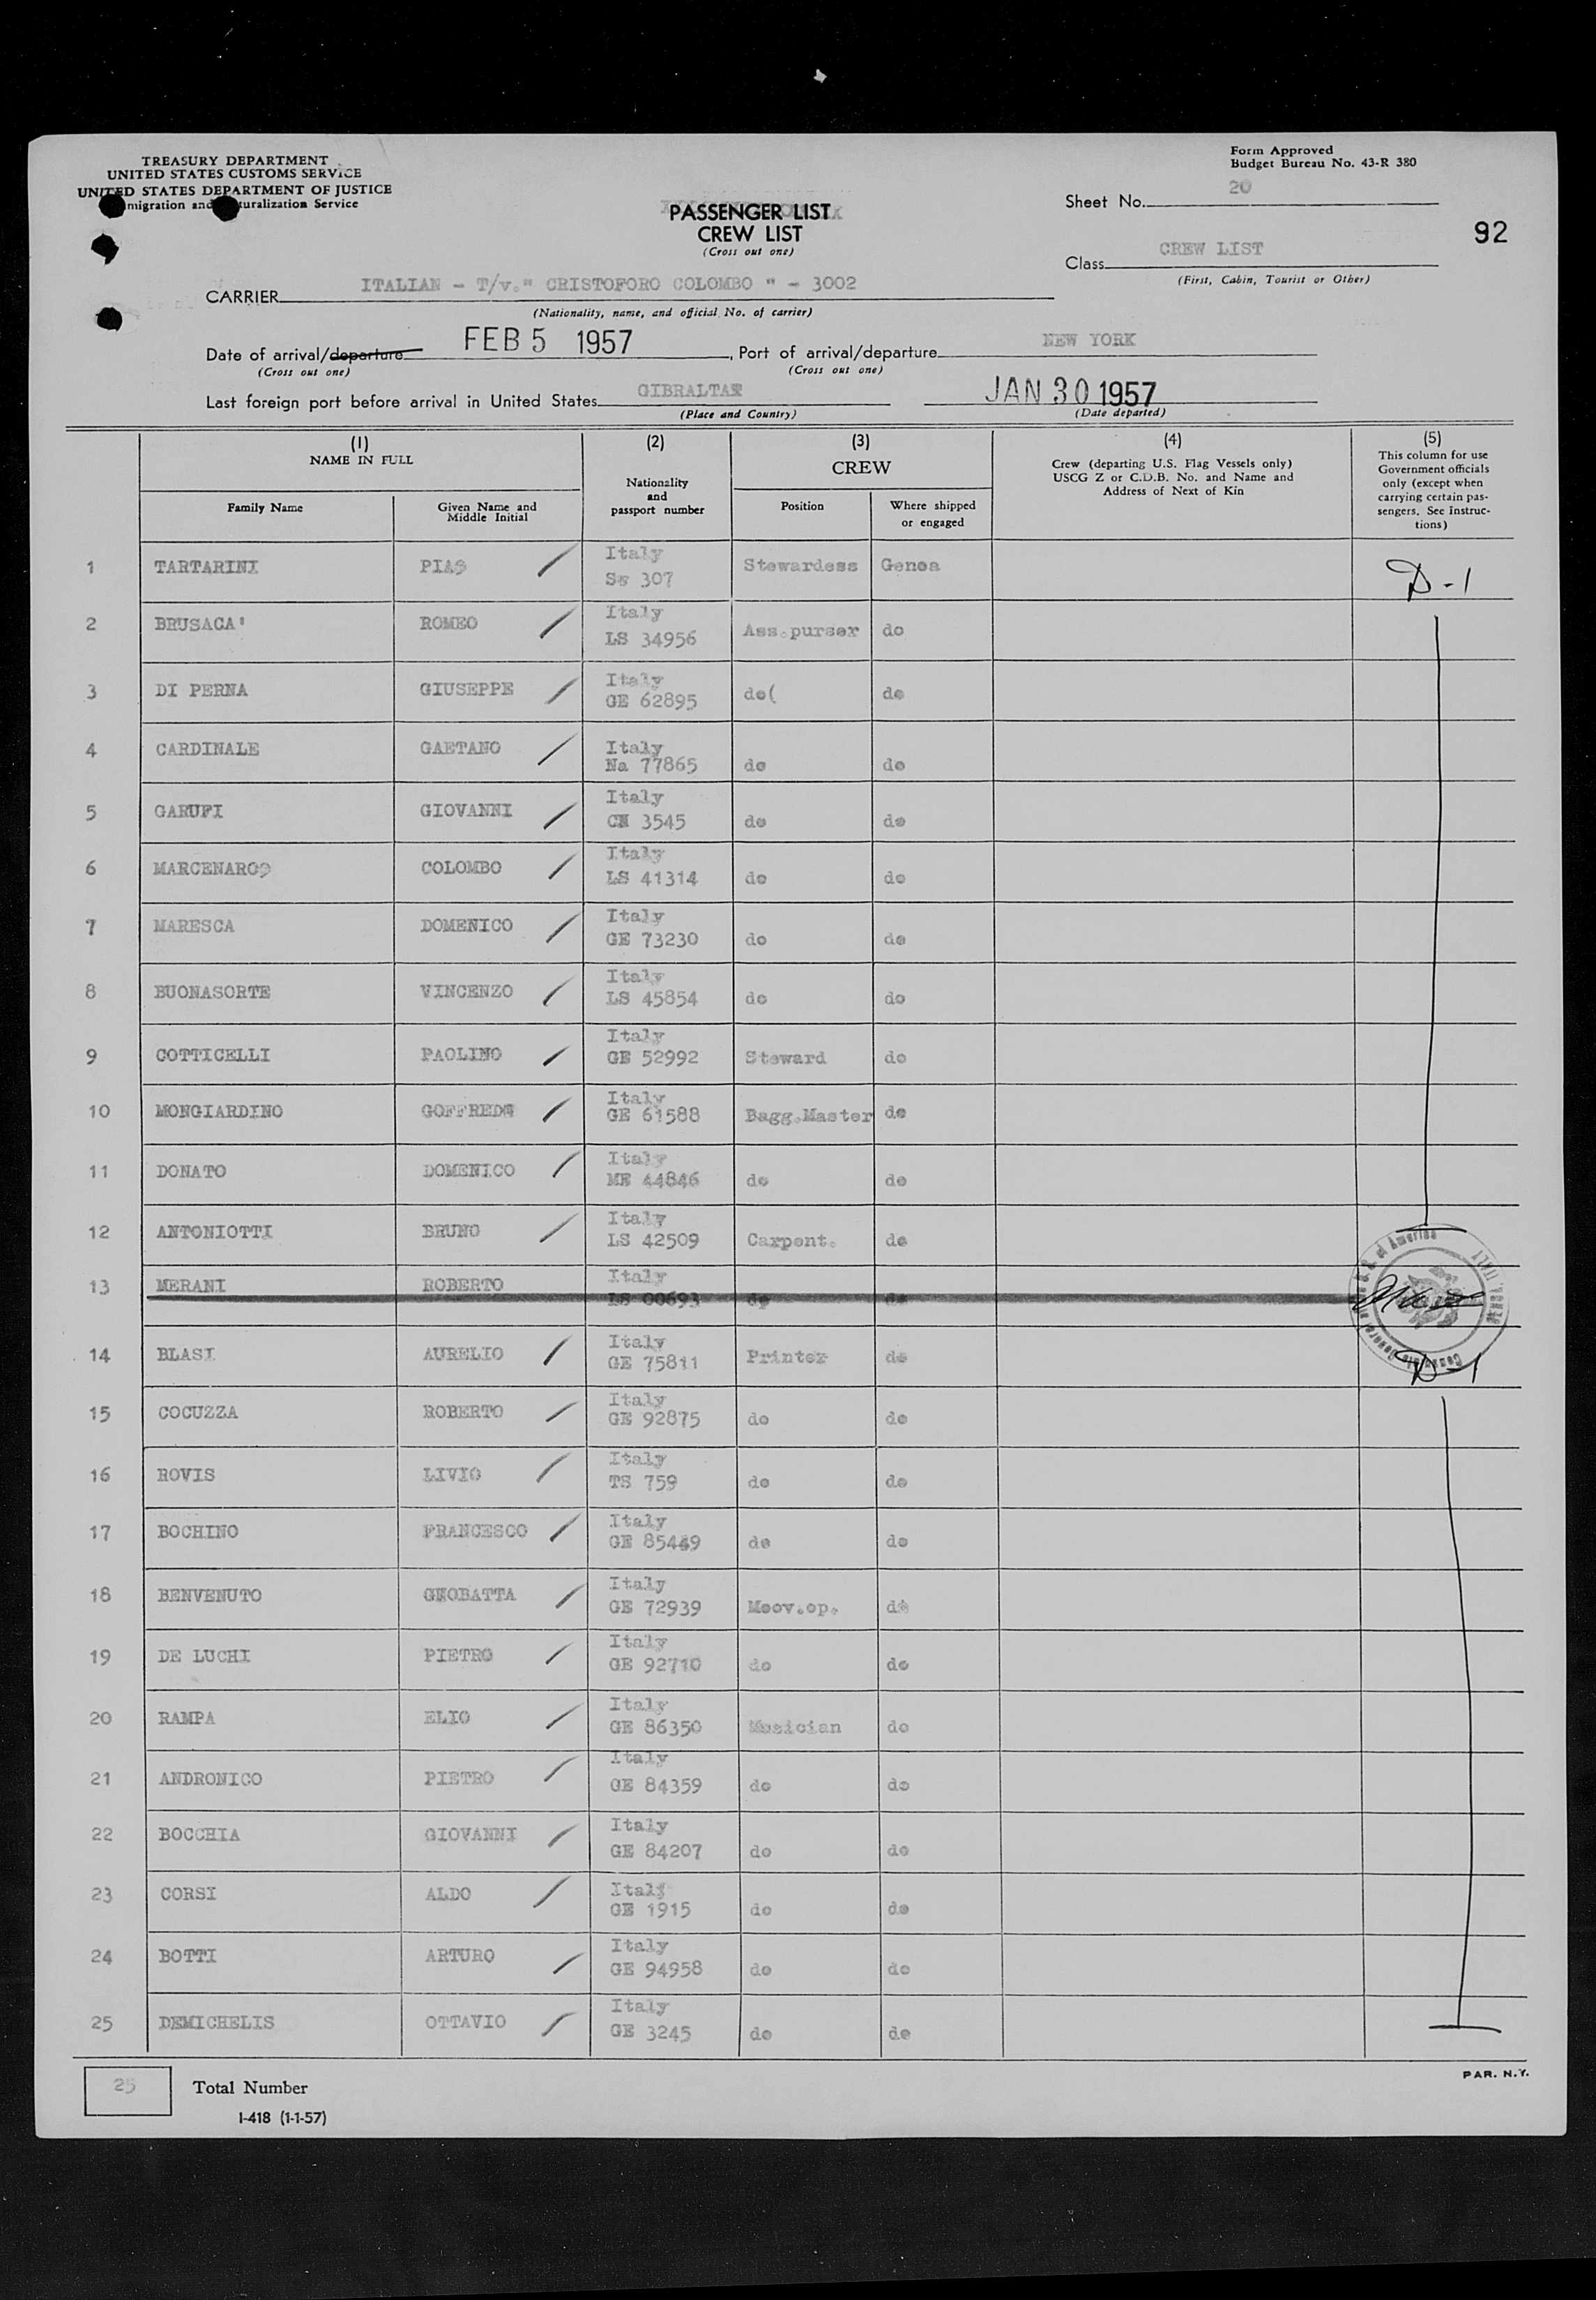 TREASURY DEPARTMENT
UNITED STATES CUSTOMS SERVICE
UNITED STATES DEPARTMENT OF JUSTICE
migration and uralization Service
Form Approved
Budget Bureau No. 43-R 380
Sheet No. 20
92
PASSENGER LIST
CREW LIST
(Cross out one)
Class CREW LIST
(First, Cabin, Tourist or Other)
CARRIER ITALIAN - T/v." CRISTOFORO COLOMBO " - 3002
(Nationality, name, and official No. of carrier)
Date of arrival/departure FEB 5 1957, Port of arrival/departure NEW YORK
(Cross out one) (Cross out one)
Last foreign port before arrival in United States GIBRALTAR JAN 30 1957
(Place and Country) (Date departed)
(1) (2) (3) (4) (5)
NAME IN FULL
Family Name
Given Name and Middle Initial
Nationality and passport number
CREW
Position
Where shipped or engaged
Crew (departing U.S. Flag Vessels only)
USCG Z or C.D.B. No. and Name and
Address of Next of Kin
This column for use
Government officials
only (except when
carrying certain pas-
sengers. See Instruc-
tions)
1 TARTARINI PIAS Italy 307 Stewardess Genoa D-1
2 BRUSACA' ROMEO Italy LS 34956 Ass.purser do
3 DI PERNA GIUSEPPE Italy GE 62895 do( do
4 CARDINALE GAETANO Italy Na 77865 do do
5 GARUFI GIOVANNI Italy 3545 do do
6 MARCENARO COLOMBO Italy LS 41314 do do
7 MARESCA DOMENICO Italy GE 73230 do do
8 BUONASORTE VINCENZO Italy LS 45854 do do
9 COTTICELLI PAOLINO Italy GE 52992 Steward do
10 MONGIARDINO GOFFREDO Italy GE 61588 Bagg.Master do
11 DONATO DOMENICO Italy ME 44846 do do
12 ANTONIOTTI BRUNO Italy LS 42509 Carpent. do
13 MERANI ROBERTO Italy LS 00693 do do
14 BLASI AURELIO Italy GE 75811 Printer do D-1
15 COCUZZA ROBERTO Italy GE 92875 do do
16 ROVIS LIVIO Italy TS 759 do do
17 BOCHINO FRANCESCO Italy GE 85449 do do
18 BENVENUTO GIOBATTA Italy GE 72939 Moov.op. do
19 DE LUCHI PIETRO Italy GE 92710 do do
20 RAMPA ELIO Italy GE 86350 Musician do
21 ANDRONICO PIETRO Italy GE 84359 do do
22 BOCCHIA GIOVANNI Italy GE 84207 do do
23 CORSI ALDO Italy GE 1915 do do
24 BOTTI ARTURO Italy GE 94958 do do
25 DEMICHELIS OTTAVIO Italy GE 3245 do do
25 Total Number
I-418 (1-1-57)
PAR. N.Y.